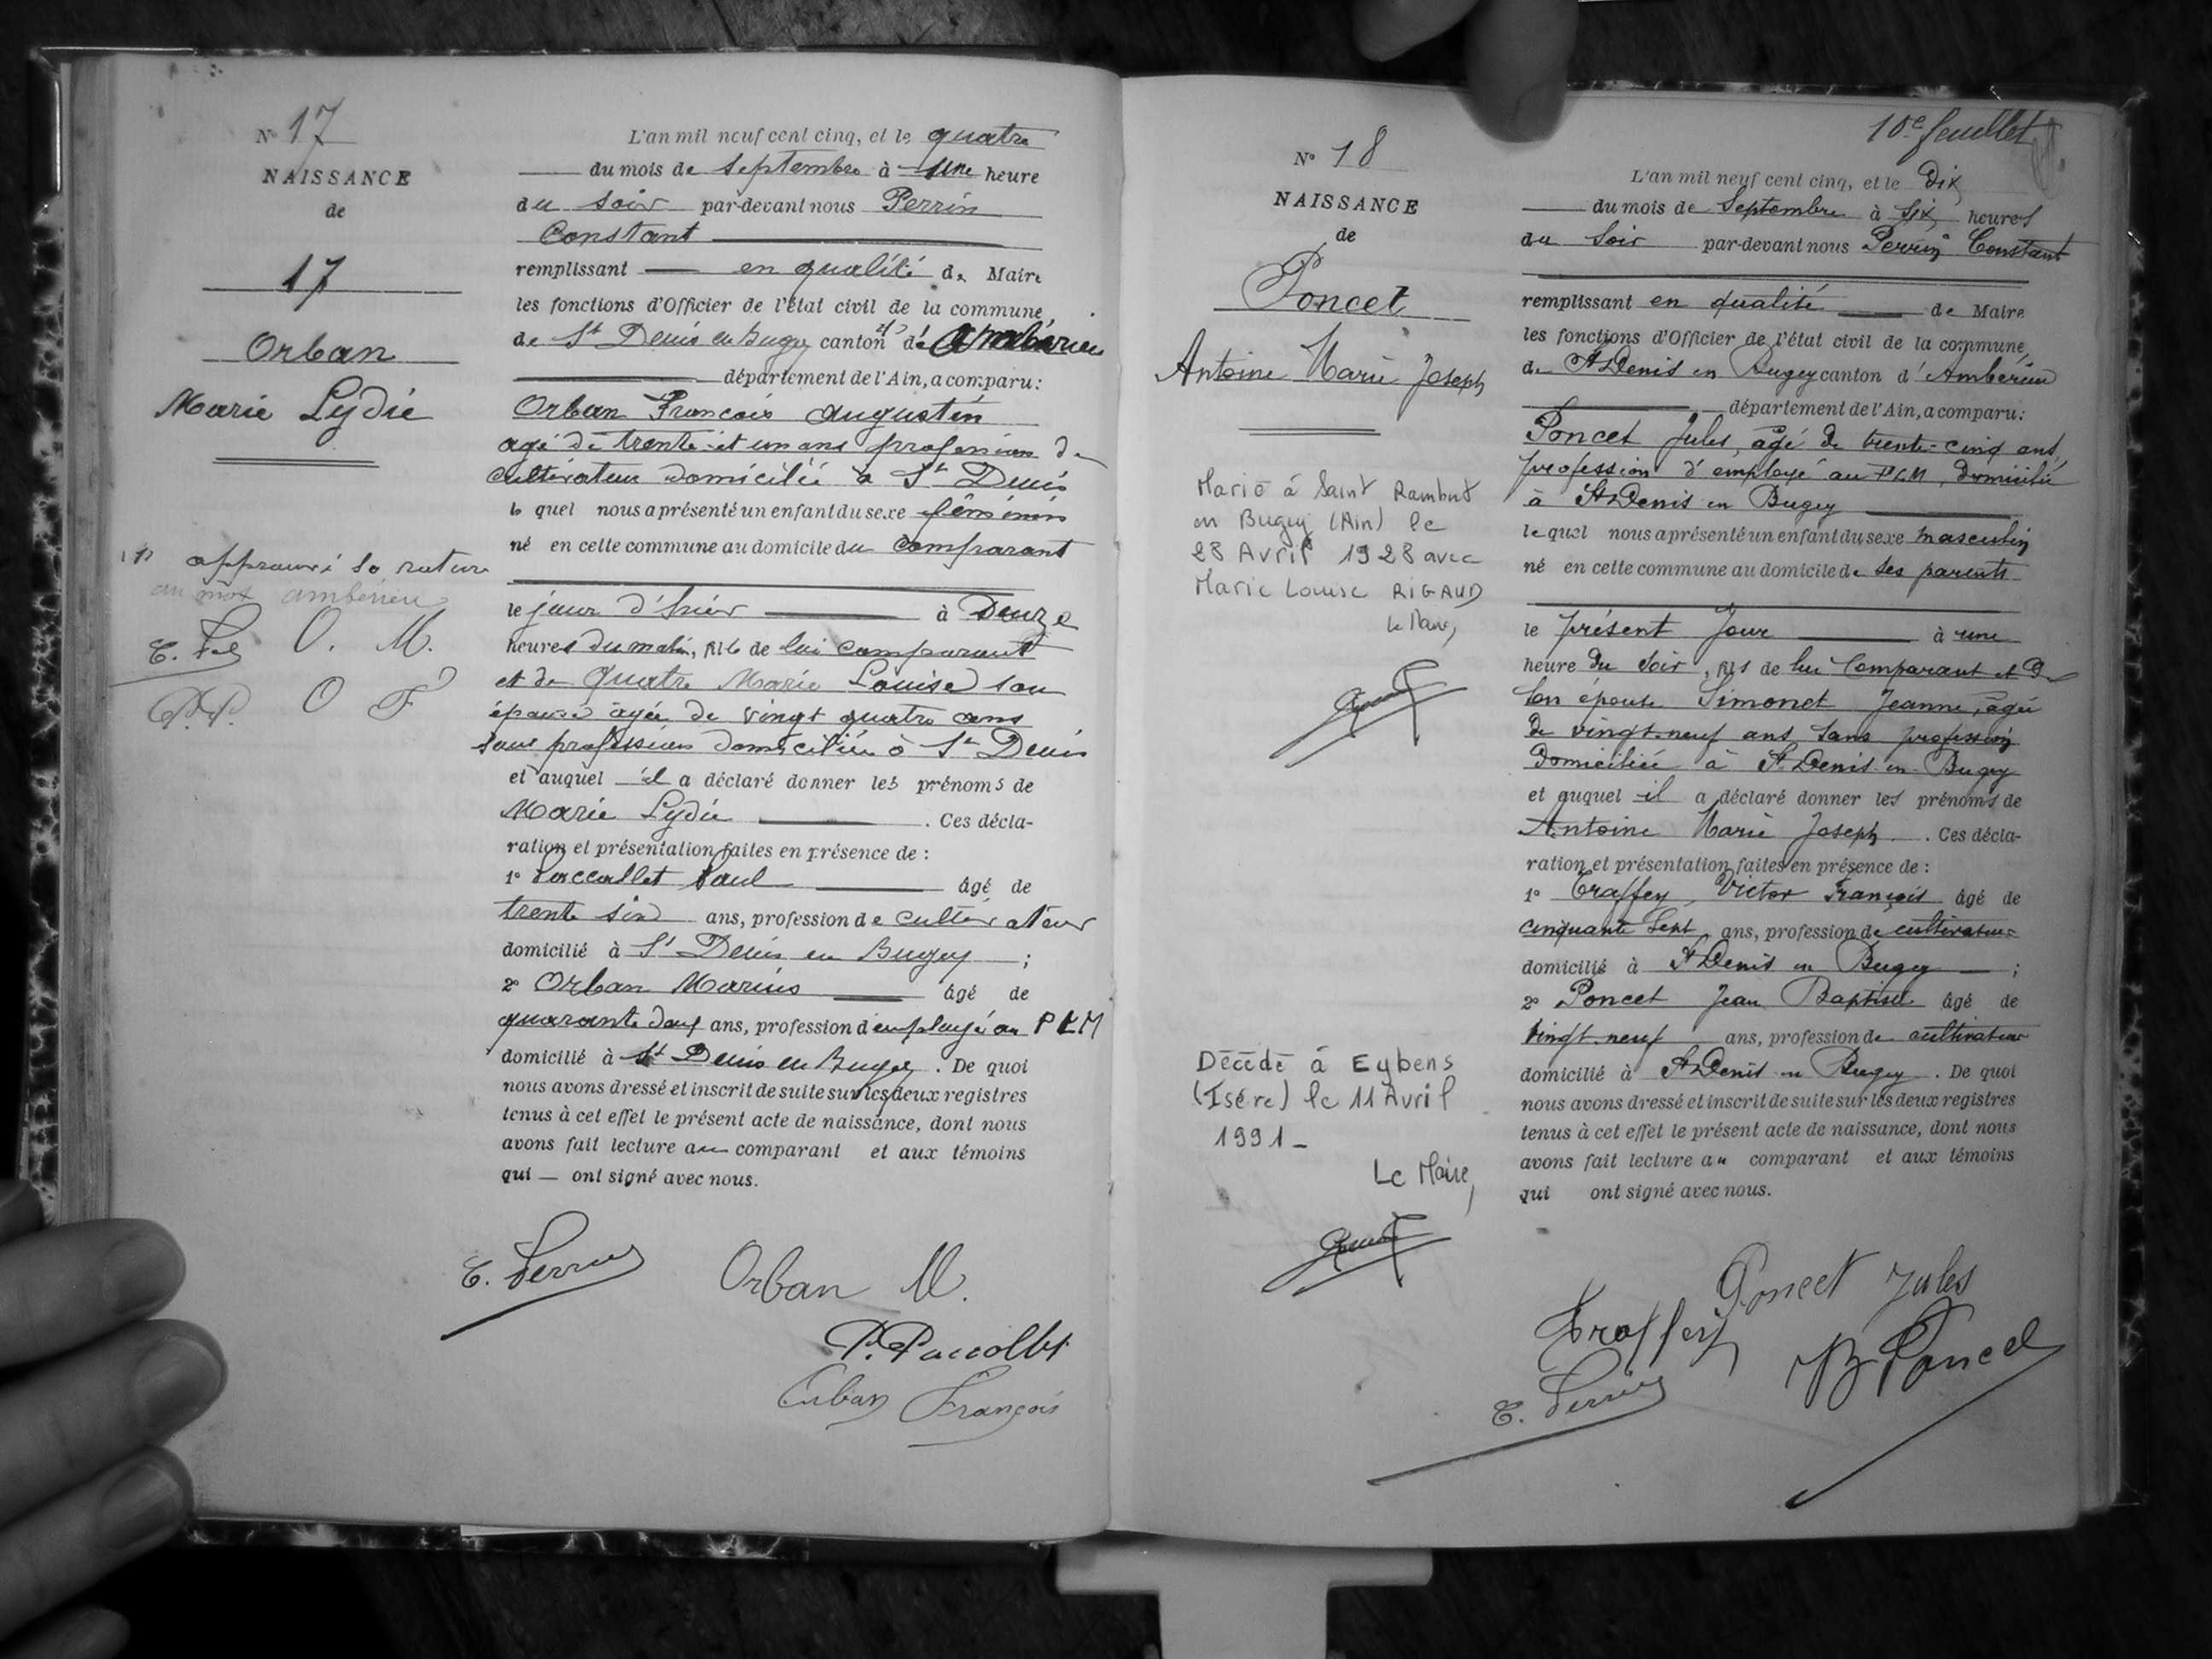 N° 17
NAISSANCE
de
17
Orban
Marie Lydie
(1) approuvé la rature
au mot ambérieu
O. M.
P.P. O F
L'an mil neuf cent cinq, et le quatre
du mois de septembre à une heure
du soir par-devant nous Perrin
Constant
remplissant en qualité de Maire
les fonctions d'Officier de l'état civil de la commune
de St Denis en Bugey canton d'Ambérieu
département de l'Ain, a comparu:
Orban François Augustin
agé de trente et un ans profession de
cultivateur domicilié à St Denis
lequel nous a présenté un enfant du sexe féminin
né en cette commune au domicile du comparant
le jour d'hier à Douze
heures du matin, fille de lui comparant
et de Quatre Marie Louise son
épouse agée de vingt quatre ans
sans profession domiciliée à St Denis
et auquel il a déclaré donner les prénoms de
Marie Lydie . Ces décla-
ration et présentation faites en présence de :
1° Paccallet Paul âgé de
trente six ans, profession de cultivateur
domicilié à St Denis en Bugey ;
2° Orban Marius âgé de
quarante deux ans, profession d'employé au PLM
domicilié à St Denis en Bugey . De quoi
nous avons dressé et inscrit de suite sur les deux registres
tenus à cet effet le présent acte de naissance, dont nous
avons fait lecture au comparant et aux témoins
qui — ont signé avec nous.
C. Perrin
Orban M.
P. Paccollet
Orban François
10e feuillet
N° 18
NAISSANCE
de
Poncet
Antoine Marie Joseph
Marié à Saint Rambert
en Bugey (Ain) le
28 Avril 1928 avec
Marie Louise RIGAUD
Le Maire,
Décédé à Eybens
(Isère) le 11 Avril
1991 -
Le Maire,
L'an mil neuf cent cinq, et le Dix
du mois de Septembre à Six heures
du Soir par-devant nous Perrin Constant
remplissant en qualité de Maire
les fonctions d'Officier de l'état civil de la commune
de St Denis en Bugey canton d'Ambérieu
département de l'Ain, a comparu:
Poncet Jules, âgé de trente-cinq ans,
profession d'employé au PLM, domicilié
à St Denis en Bugey
lequel nous a présenté un enfant du sexe masculin
né en cette commune au domicile de ses parents
le présent Jour à une
heure du soir, fils de lui Comparant et de
son épouse Simonet Jeanne, âgée
de vingt-neuf ans, sans profession
domiciliée à St Denis en Bugey
et auquel il a déclaré donner les prénoms de
Antoine Marie Joseph . Ces décla-
ration et présentation faites en présence de :
1° Traffey, Victor François âgé de
cinquante Sept ans, profession de cultivateur
domicilié à St Denis en Bugey ;
2° Poncet Jean Baptiste âgé de
vingt-neuf ans, profession de cultivateur
domicilié à St Denis en Bugey . De quoi
nous avons dressé et inscrit de suite sur les deux registres
tenus à cet effet le présent acte de naissance, dont nous
avons fait lecture au comparant et aux témoins
qui ont signé avec nous.
Poncet Jules
Traffey
JB Poncet
C. Perrin